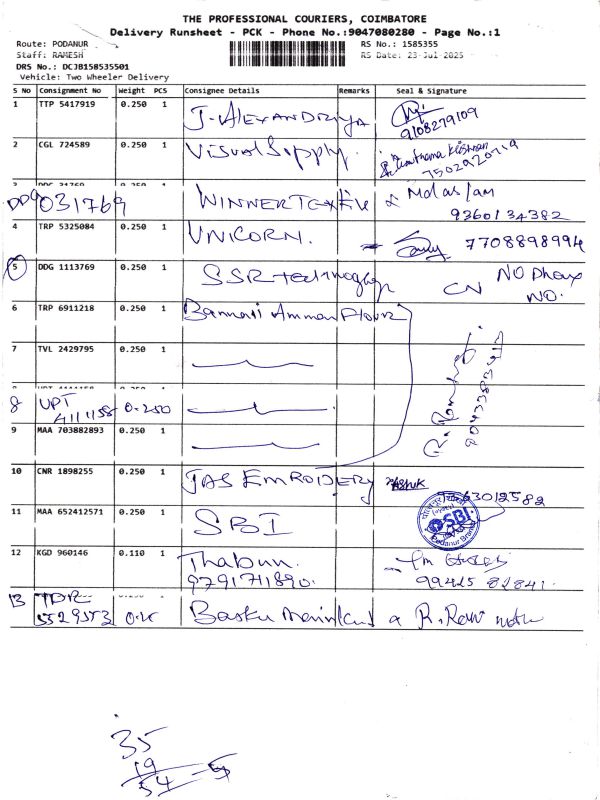 THE PROFESSIONAL COURIERS, COIMBATORE
Delivery Runsheet - PCK - Phone No.:9047080280 - Page No.:1
Route: PODANUR RS No.: 1585355
Staff: RAMESH RS Date: 23-Jul-2025
DRS No.: DCJB158535501
Vehicle: Two Wheeler Delivery
S No Consignment No Weight PCS Consignee Details Remarks Seal & Signature
1 TTP 5417919 0.250 1 J-ALEXANDRIYA
9108279109
2 CGL 724589 0.250 1 Visual Supply
7502920719
DDG 031769 WINNER Tex Md aslam
9360134382
4 TRP 5325084 0.250 1 UNICORN. 7708898994
5 DDG 1113769 0.250 1 SSR CN NO Phone
NO.
6 TRP 6911218 0.250 1 Bannari Amman Flour
7 TVL 2429795 0.250 1
8 UPT 4111158 0.250
9 MAA 703882893 0.250 1
10 CNR 1898255 0.250 1 JAS EMROIDERY Ashuk
9563012582
11 MAA 652412571 0.250 1 SBI SBI
Podanur Branch
12 KGD 960146 0.110 1 Thabun.
9791711890. 99425 82841.
13 TDR
5529553 Basku R. Ravi
35
19
54